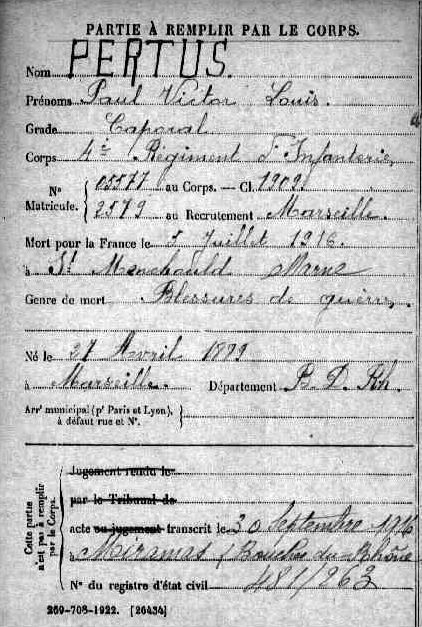 PARTIE À REMPLIR PAR LE CORPS.
Nom PERTUS.
Prénoms Paul Victor Louis.
Grade Caporal
Corps 4e Régiment d'Infanterie
N° Matricule. { 05577 au Corps. — Cl. 1909.
2579 au Recrutement Marseille.
Mort pour la France le 5 Juillet 1916.
à St Menehould Marne
Genre de mort Blessures de guerre.
Né le 27 Avril 1879
à Marseille. Département B. D. Rh.
Arrt municipal (pr Paris et Lyon), à défaut rue et N°. }
Cette partie n'est pas à remplir par le Corps.
Jugement rendu le
par le Tribunal de
acte ou jugement transcrit le 30 Septembre 1916
à Miramas, Bouches du Rhône
N° du registre d'état civil 481/263
269-708-1922. [26434]